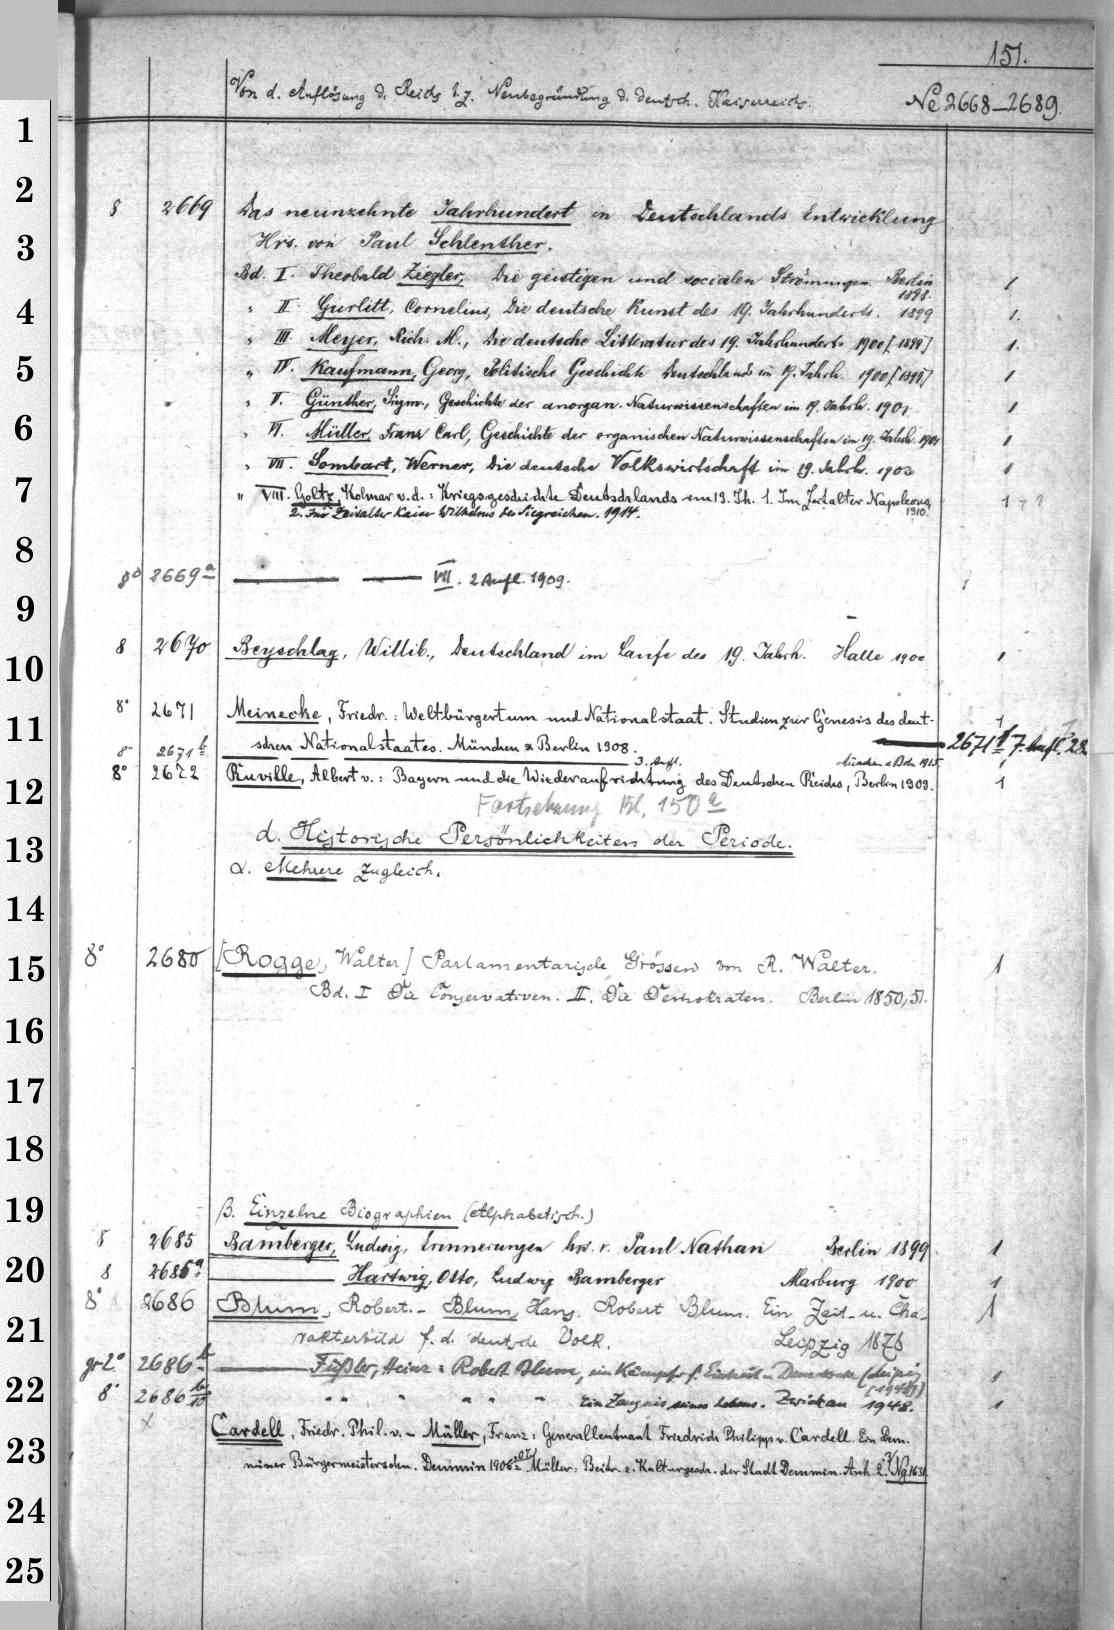 151.
Von d. Auflösung d. Reichs b. z. Neubegründung d. deutsch. Kaiserreichs. Ne 2668–2689.
1
2
3
4
5
6
7
8
9
10
11
12
13
14
15
16
17
18
19
20
21
22
23
24
25
8 2669 Das neunzehnte Jahrhundert in Deutschlands Entwicklung
Hrs. von Paul Schlenther.
Bd. I. Theobald Ziegler, Die geistigen und socialen Strömungen. Berlin 1898. 1
" II. Gurlitt, Cornelius, Die deutsche Kunst des 19. Jahrhunderts. 1899 1.
" III. Meyer, Rich. M., Die deutsche Litteratur des 19. Jahrhunderts 1900 [1899] 1.
" IV. Kaufmann, Georg, Politische Geschichte Deutschlands im 19. Jahrh. 1900 [1899] 1
" V. Günther, Sigm., Geschichte der anorgan. Naturwissenschaften im 19. Jahrh. 1901 1
" VI. Müller, Franz Carl, Geschichte der organischen Naturwissenschaften im 19. Jahrh. 1901 1
" VII. Sombart, Werner, Die deutsche Volkswirtschaft im 19. Jahrh. 1903 1
" VIII. Goltz, Kolmar v. d.: Kriegsgeschichte Deutschlands im 19. Jh. 1. Im Zeitalter Napoleons, 1910. 1 + 1
2. Im Zeitalter Kaiser Wilhelms des Siegreichen. 1914.
8° 2669a VII. 2 Aufl. 1909. 1
8 2670 Beyschlag, Willib., Deutschland im Laufe des 19. Jahrh. Halle 1900 1
8° 2671 Meinecke, Friedr.: Weltbürgertum und Nationalstaat. Studien zur Genesis des deut- 1
schen Nationalstaates. München & Berlin 1908. 2671 7. Aufl. 28
8° 2671b 3. Aufl. München u. Bln 1915 1
8° 2672 Ruville, Albert v.: Bayern und die Wiederaufrichtung des Deutschen Reiches, Berlin 1909. 1
Fortsetzung Bl. 150a
d. Historische Persönlichkeiten der Periode.
α. Mehrere zugleich.
8° 2680 [Rogge, Walter] Parlamentarische Grössen von R. Walter. 1
Bd. I Die Conservativen. II. Die Demokraten. Berlin 1850,51.
β. Einzelne Biographien (Alphabetisch.)
8 2685 Bamberger, Ludwig, Erinnerungen hrs. v. Paul Nathan Berlin 1899 1
8 2685a Hartwig, Otto, Ludwig Bamberger Marburg 1900 1
8° 2686 Blum, Robert. – Blum, Hans. Robert Blum. Ein Zeit- u. Cha- 1
rakterbild f. d. deutsche Volk. Leipzig 1878
gr2° 2686b Füßler, Heinz: Robert Blum, ein Kämpfer f. Einheit u. Demokratie (Leipzig (1948)) 1
8° 2686 " " " " " " Ein Zeugnis seines Lebens. Zwickau 1948. 1
x Cardell, Friedr. Phil. v. – Müller, Franz: Generalleutnant Friedrich Philipp v. Cardell. Ein Dem-
miner Bürgermeisterssohn. Demmin 1906 Müller: Beitr. z. Kulturgesch. der Stadt Demmin. Anh. 2. Ng 1631